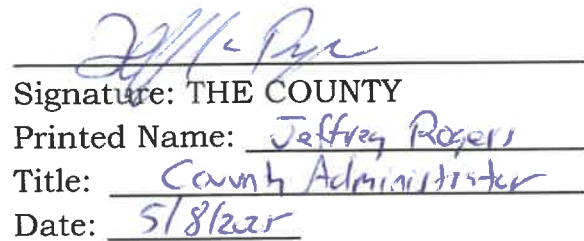 Signature: THE COUNTY
Printed Name: Jeffrey Rogers
Title: County Administrator
Date: 5/8/2025